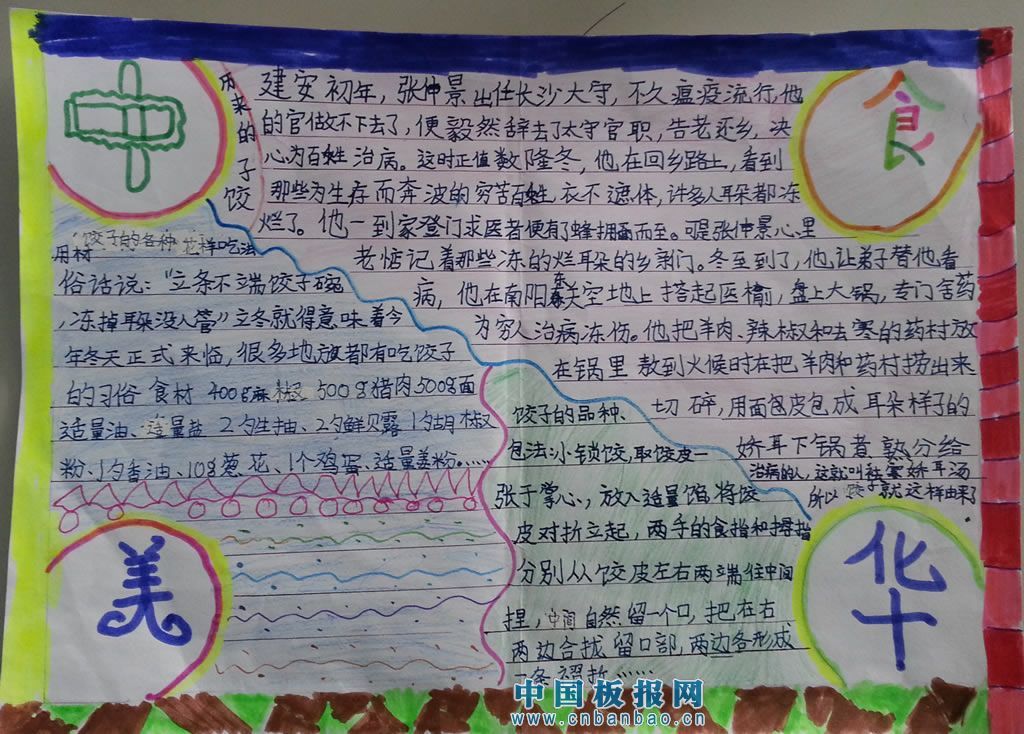 中
食
历来的子饺
建安初年，张仲景出任长沙大守，不久瘟疫流行，他
的官做不下去了，便毅然辞去了太守官职，告老还乡，决
心为百姓治病。这时正值数隆冬，他在回乡路上，看到
那些为生存而奔波的穷苦百姓衣不遮体，许多人耳朵都冻
烂了。他一到家登门求医者便有了蜂拥而至。可是张仲景心里
老惦记着那些冻的烂耳朵的乡亲们。冬至到了，他让弟子替他看
病，他在南阳东关空地上搭起医棚，盘上大锅，专门舍药
为穷人治病冻伤。他把羊肉、辣椒和去寒的药材放
在锅里熬到火候时在把羊肉和药材捞出来
切碎，用面包皮包成耳朵样子的
娇耳下锅煮熟分给
治病的人，这就叫祛寒娇耳汤
所以饺子就这样由来了.
“饺子的各种花样吃法
用材
俗话说：“立冬不端饺子碗
，冻掉耳朵没人管”立冬就得意味着今
年冬天正式来临，很多地放都有吃饺子
的习俗 食材 400g麻椒 500g猪肉500g面
适量油、适量盐 2勺生抽、2勺鲜贝露 1勺胡椒
粉、1勺香油、10g葱花、1个鸡蛋、适量姜粉……
饺子的品种、
包法:小锁饺，取饺皮一
张于掌心，放入适量馅将饺
皮对折立起，两手的食指和拇指
分别从饺皮左右两端往中间
捏，中间自然留一个口，把在右
两边合找留口部，两边各形成
一条褶折……
美
华
中国板报网
www.cnbanbao.cn